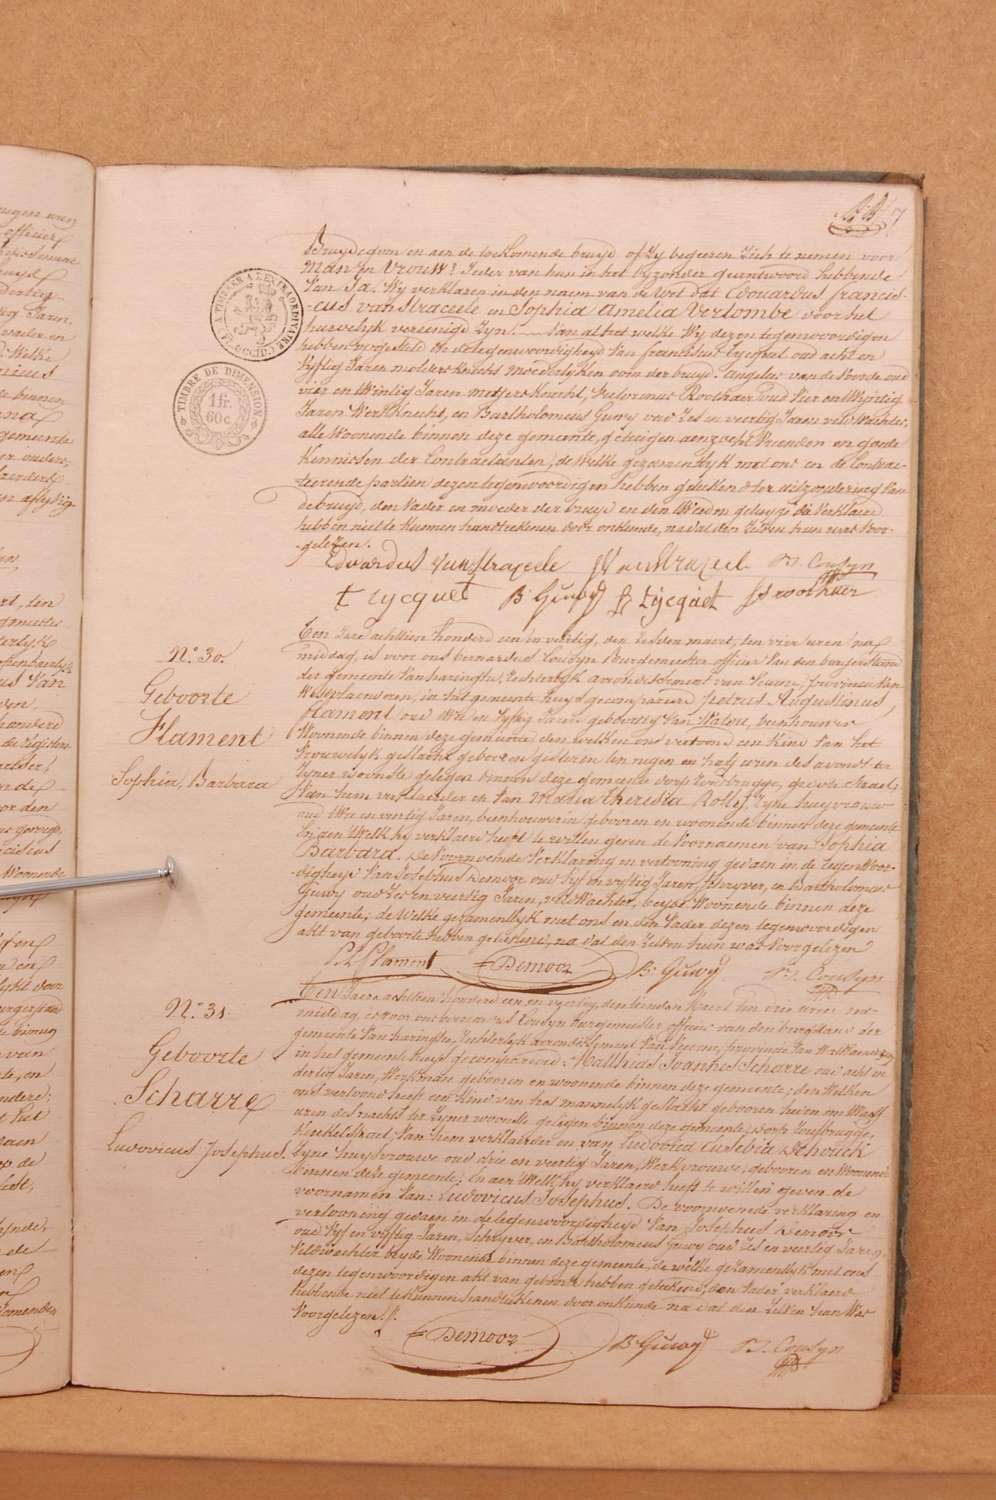 Bruydegom en aen de toekomende bruyd of zy begeeren zich te nemen voor
Man en Vrouw? Jeder van hun in het byzonder geantwoord hebbende
Van Ja. Wy verklaren in den naem van de Wet dat Edouardus Francis-
-cus van Straceele en Sophia Amelia Verlombe voor het
huwelyk vereenigd zyn. Van al het welke Wy dezen tegenwoordigen
hebben opgesteld in de tegenwoordigheyd van franciscus oud acht en
Vyftig Jaren moldersknecht moederlyken oom der bruyd, Angelus van de Voorde oud
vier en twintig Jaren metsersknecht, Roothaer oud Vier en
Jaren Werkknecht, en Bartholomeus Guwy oud Zes en veertig Jaren veld Wachter,
alle Woonende binnen deze gemeente, getuigen aenzocht Vrienden en goede
Kennissen der Contractanten, de Welke gezamentlyk met ons en de Contrac-
-teerende partien dezen tegenwoordigen hebben geteekend ter uitzondering van
de bruyd, den Vader en moeder der bruyd en den getuyge die Verklaerd
hebben niet te kunnen handteekenen door onkunde, na dat den Zelven hun was Voor-
-gelezen.
Edvardus van Straceele B. Cousyn
B. Guwy
N.° 30.
Geboorte
Flament
Sophia, Barbara
Een Jaer achttien honderd een en veertig, den Zesden maert, ten vier uren na
middag, is voor ons bernardus Cousyn Burgemeester officier Van den burgerstand
der gemeente Van haringhe, rechterlyk arrondissement van Veurne, provincie Van
Westvlaenderen, in het gemeente huys gecompareerd Petrus Augustinus
Flament oud Wee en Vyftig Jaren geboortig Van Watou, beenhouwer
Woonende binnen deze gemeente den welken ons vertoond een Kind Van het
Vrouwelyk geslacht geboren gisteren ten negen en half uren des avonds te
Zyner woonste gelegen binnen deze gemeente dorp rousbrugge, groote straet,
Van hem verklaerder en Van Maria Theresia Rolly, Zyne huysvrouw
oud Wee en veertig Jaren, beenhouwerin geboren en woonende binnen deze gemeente
En aen Welk hy verklaerd heeft te willen geven de Voornamen van Sophia
Barbara. De Voornoemde Verklaring en vertooning gedaen in de tegenwoor-
-digheyd Van Josephus Demoor oud vyf en vyftig Jaren, Schryver, en Bartholomeus
Guwy oud Zes en veertig Jaren, veld Wachter, beyde Woonende binnen deze
gemeente; de Welke gezamentlyk met ons en den Vader dezen tegenwoordigen
akt van geboorte hebben geteekend, na dat den Zelven hun was Voorgelezen
Flament Demoor B. Guwy B. Cousyn
N.° 31
Geboorte
Scharre
Ludovicus Josephus
Een Jaer achttien honderd een en veertig, den tienden Maert ten drie uren na
middag, is voor ons bernardus Cousyn burgemeester, officier van den burgstand der
gemeente Van haringhe, rechterlyk arrondissement Van Veurne, provincie Van West Vlaenderen
in het gemeente huys gecompareerd: Matthias Joannes Scharre oud acht en
dertig Jaren, Werkman, geboren en woonende binnen deze gemeente; den Welken
ons vertoond heeft een Kind van het mannelyk geslacht gebooren heden om
uren des nachts te Zyner woonste gelegen binnen deze gemeente, dorp rousbrugge,
Straet, Van hem verklaerder en van Ludovica Eusebia Schonck
Zyne huysvrouwe oud drie en veertig Jaren, Werkvrouwe, geboren en Woonende
binnen deze gemeente; En aen Welk hy verklaerd heeft te willen geven de
voornamen Van: Ludovicus Josephus. De voornoemde verklaring en
vertooning gedaen in de tegenwoordigheyd Van Josephus Demoor
oud Vyf en vyftig Jaren, Schryver, en Bartholomeus Guwy oud Zes en veertig Jaren,
Veldwachter beyde Woonende binnen deze gemeente, de welke gezamentlyk met ons
dezen tegenwoordigen akt van geboorte hebben geteekend, den Vader verklaerd
hebbende niet te kunnen handteekenen door onkunde na dat den Zelven hun Was
Voorgelezen.
Demoor B. Guwy B. Cousyn
TIMBRE DE DIMENSION
1 fr.
60 c.